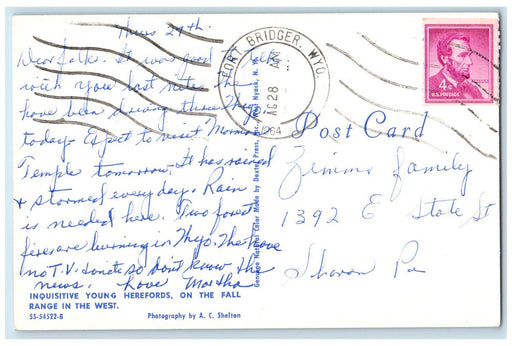 Thurs 27th.
Dear folks. It was good to talk
with you last nite.
have been driving thru Wyo
today. Expect to visit Mormon
Temple tomorrow. It has rained
& stormed every day. Rain
is needed here. Two forest
fires are burning in Wyo. The have
no T.V. tonite so don't know the
news. Love Martha
INQUISITIVE YOUNG HEREFORDS, ON THE FALL
RANGE IN THE WEST.
SS-54522-B
Photography by A. C. Shelton
Genuine Natural Color Made by Dexter Press, Inc. West Nyack, N. Y.
FORT BRIDGER, WYO.
AUG 28
AM
1964
4¢
U.S. POSTAGE
Post Card
Zimms family
1392 E State St
Sharon Pa